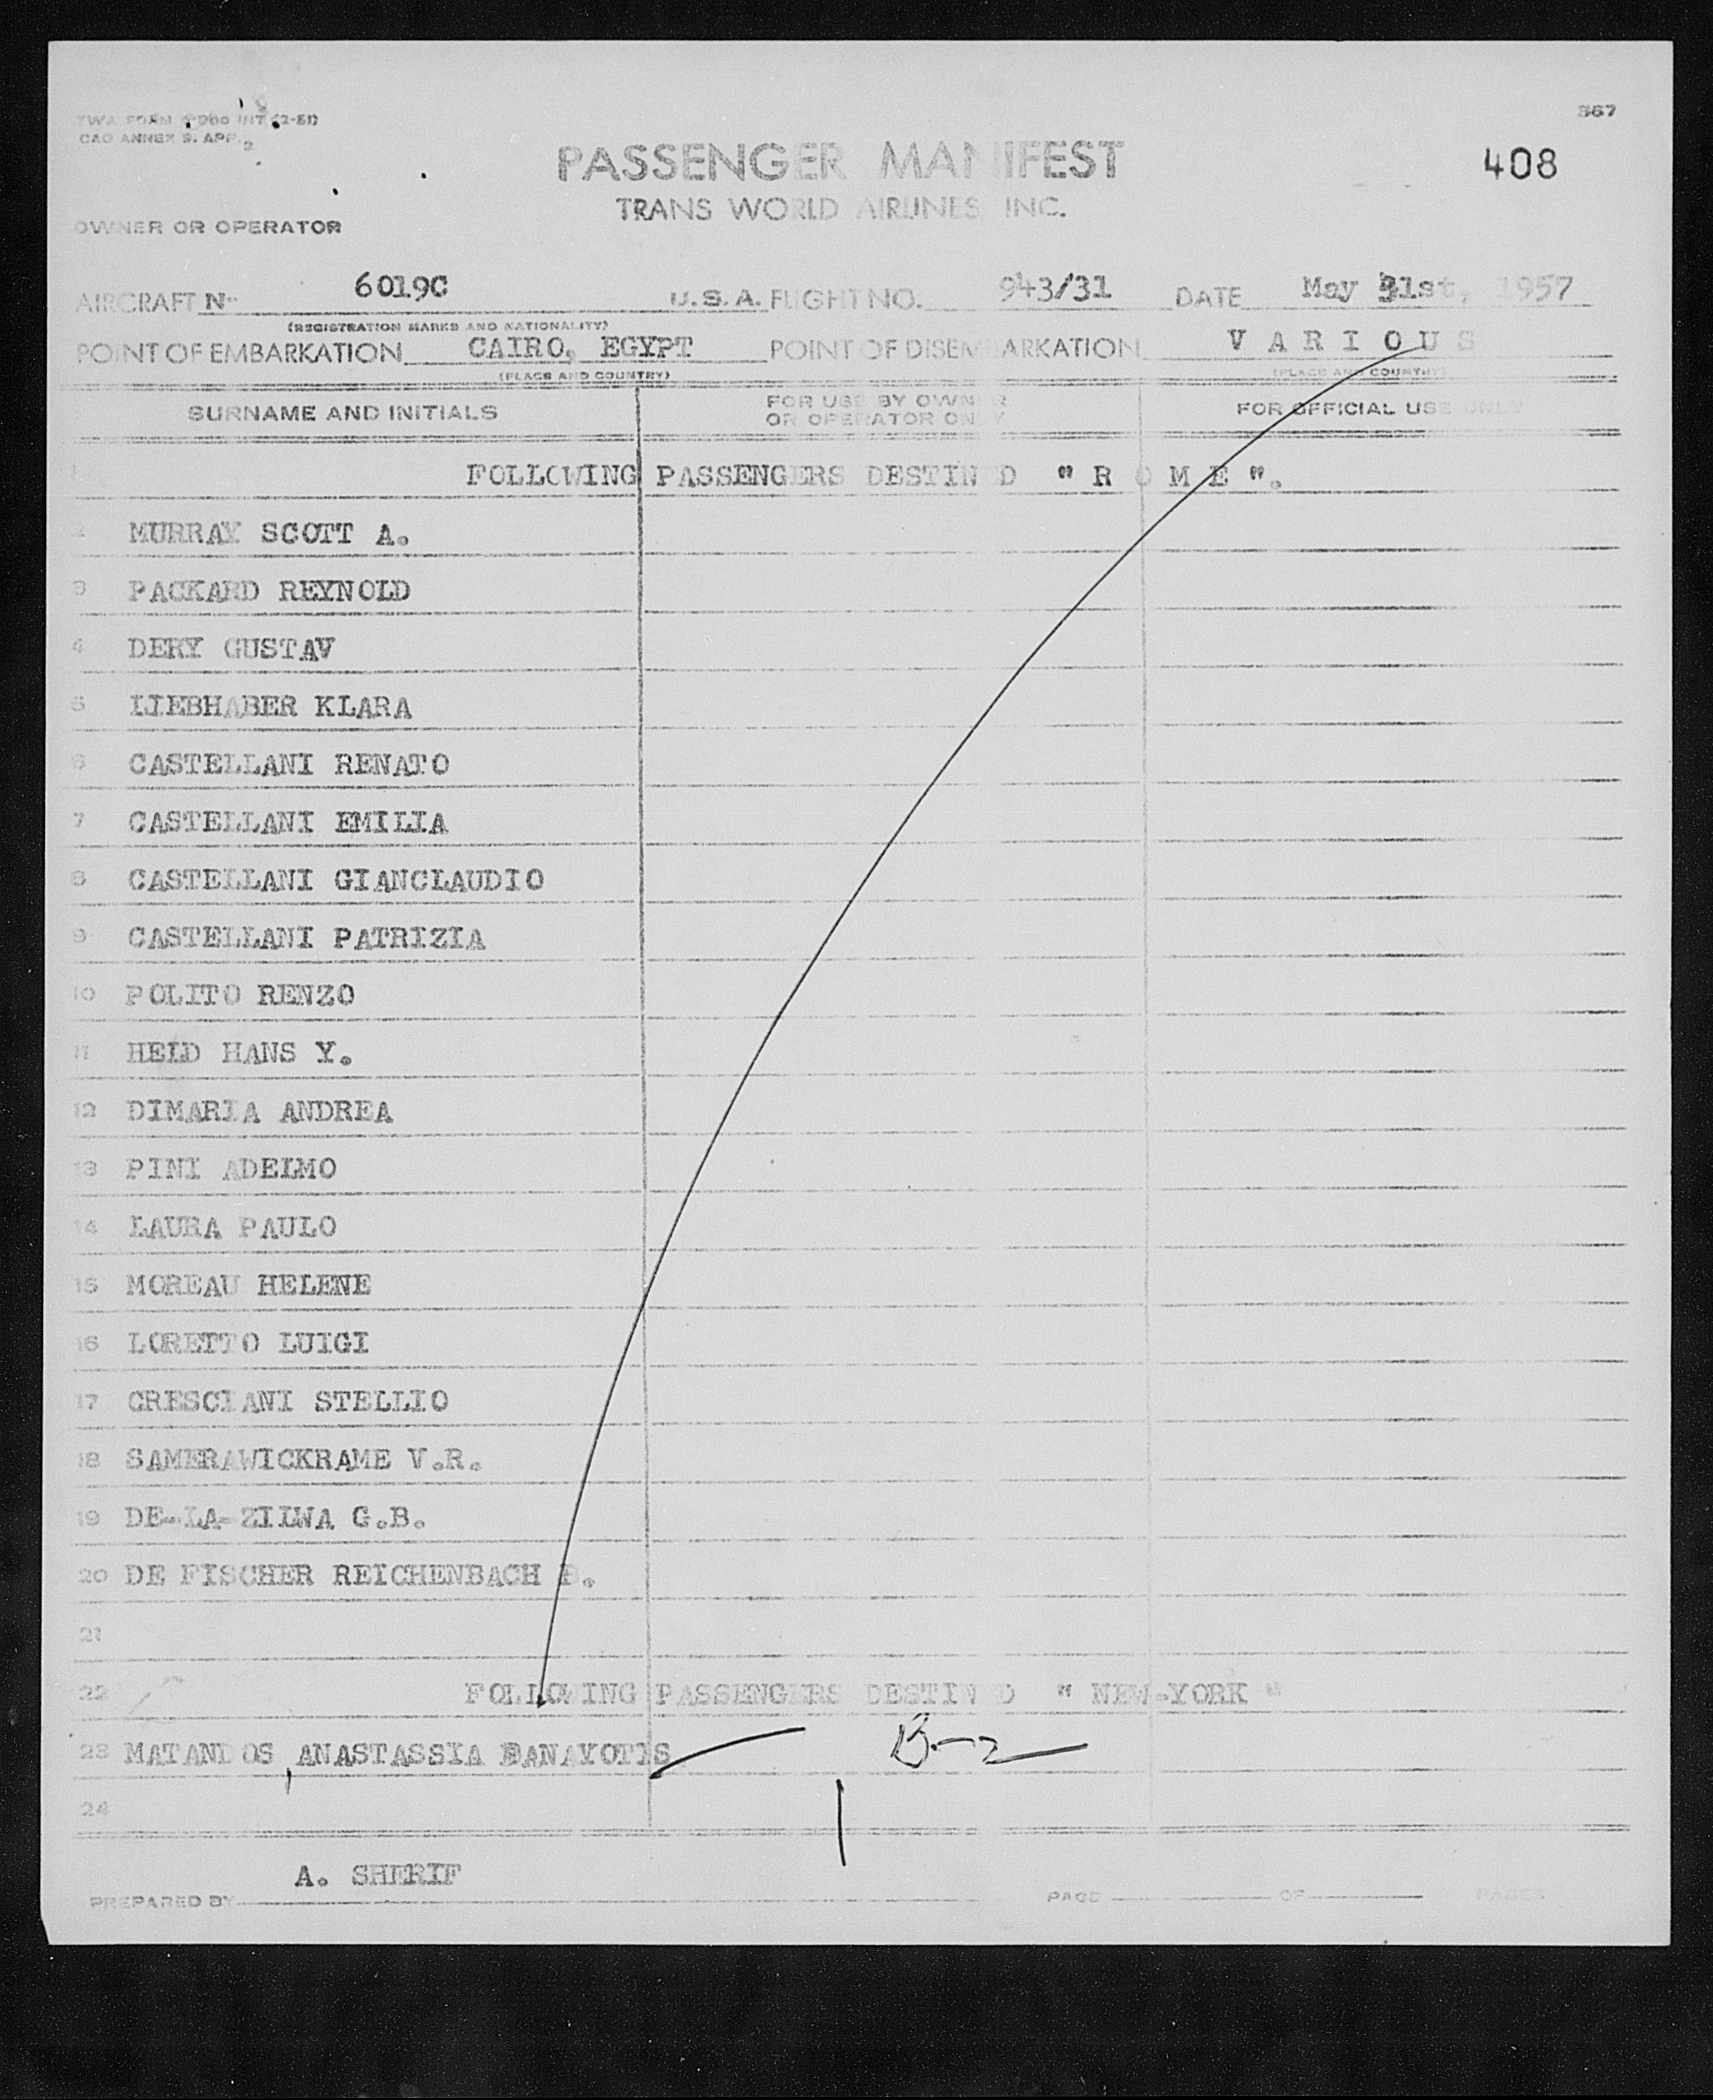 867
CAO ANNEX 9. APP. 2
PASSENGER MANIFEST
408
TRANS WORLD AIRLINES, INC.
OWNER OR OPERATOR
AIRCRAFT No 6019C U.S.A. FLIGHT NO. 943/31 DATE May 31st, 1957
(REGISTRATION MARKS AND NATIONALITY)
POINT OF EMBARKATION CAIRO, EGYPT POINT OF DISEMBARKATION VARIOUS
(PLACE AND COUNTRY) (PLACE AND COUNTRY)
SURNAME AND INITIALS FOR USE BY OWNER OR OPERATOR ONLY FOR OFFICIAL USE ONLY
1 FOLLOWING PASSENGERS DESTINED " R O M E ".
2 MURRAY SCOTT A.
3 PACKARD REYNOLD
4 DERY GUSTAV
5 LIEBHABER KLARA
6 CASTELLANI RENATO
7 CASTELLANI EMILIA
8 CASTELLANI GIANCLAUDIO
9 CASTELLANI PATRIZIA
10 POLITO RENZO
11 HELD HANS Y.
12 DIMARIA ANDREA
13 PINI ADELMO
14 LAURA PAULO
15 MOREAU HELENE
16 LORETTO LUIGI
17 CRESCIANI STELLIO
18 SAMERAWICKRAME V.R.
19 DE-LA-ZILWA G.B.
20 DE FISCHER REICHENBACH B.
21
22 FOLLOWING PASSENGERS DESTINED " NEW-YORK "
23 MATANDOS, ANASTASSIA PANAYOTIS B-2
24
A. SHERIF
PREPARED BY PAGE OF PAGES